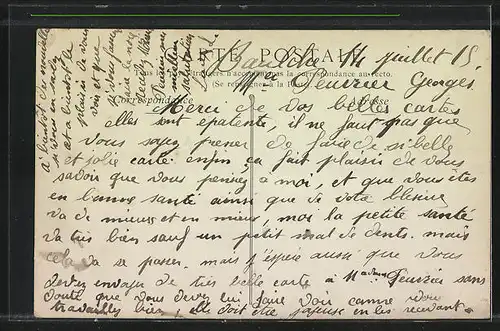 CARTE POSTALE
14 juillet 15.
Tous les pays étrangers n'acceptent pas la correspondance au recto.
(Se renseigner à la Poste)
Mr Feuvrier Georges
Correspondance Adresse
Merci de vos belles cartes
elles sont epatente, il ne faut pas que
vous soyez presser de faire de si belle
et jolie carte enfin ça fait plaisir de vous
savoir que vous pensez à moi, et que vous êtes
en bonne santé ainsi que de votre blesure
va de mieux et en mieux, moi la petite santé
va très bien sauf un petit mal de dents. mais
cela va se passer. mais j'espère aussi que vous
devez envoyer de très belle carte à Madame Feuvrier sans
doute que vous devez lui faire voir comme vous
travailles bien, elle doit être en les recevant
à bientôt de nouvelle
et bientôt le
plaisir de vous
voir et que